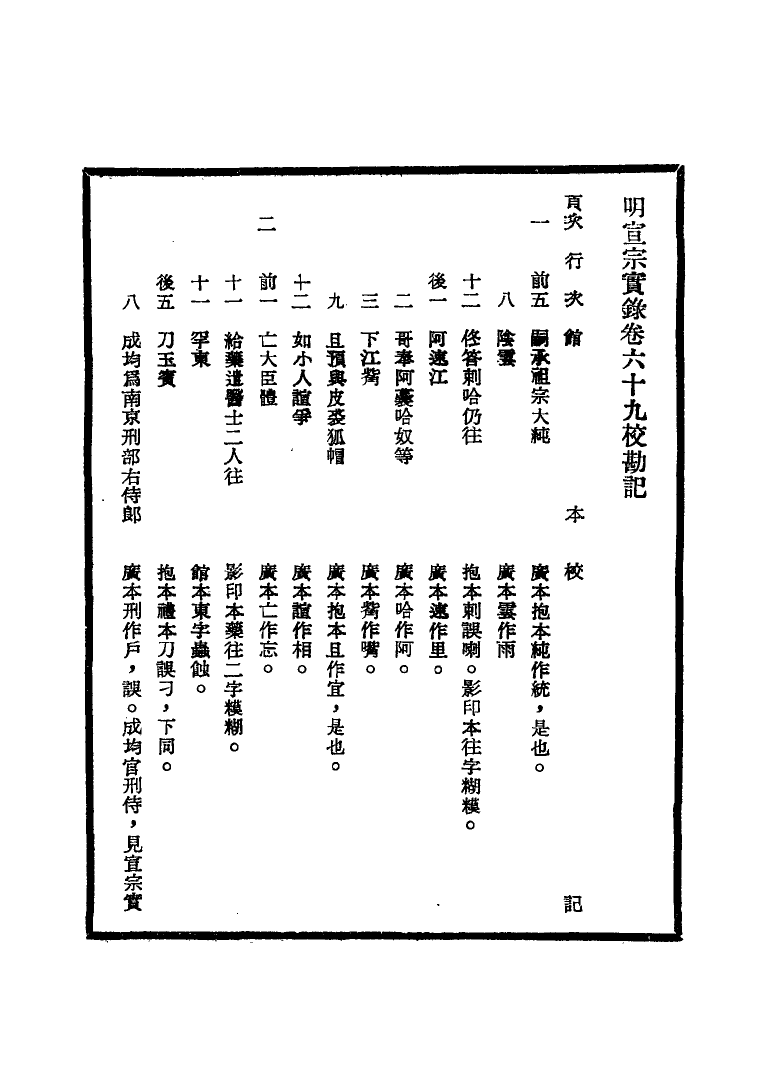 明宣宗實錄卷六十九校勘記
頁次 行次 館本 校記
一 前五 嗣承祖宗大純 廣本抱本純作統，是也。
八 陰雲 廣本雲作雨
十二 佟答剌哈仍往 抱本剌誤喇。影印本往字糊糢。
後一 阿速江 廣本速作里。
二 哥奉阿 哈奴等 廣本哈作阿。
三 下江觜 廣本觜作嘴。
九 且預與皮裘狐帽 廣本抱本且作宜，是也。
十二 如小人諠爭 廣本諠作相。
二 前一 亡大臣體 廣本亡作忘。
十一 給藥遣醫士二人往 影印本藥往二字糢糊。
十一 罕東 館本東字蟲蝕。
後五 刀玉賓 抱本禮本刀誤刁，下同。
八 成均爲南京刑部右侍郎 廣本刑作戶，誤。成均官刑侍，見宣宗實